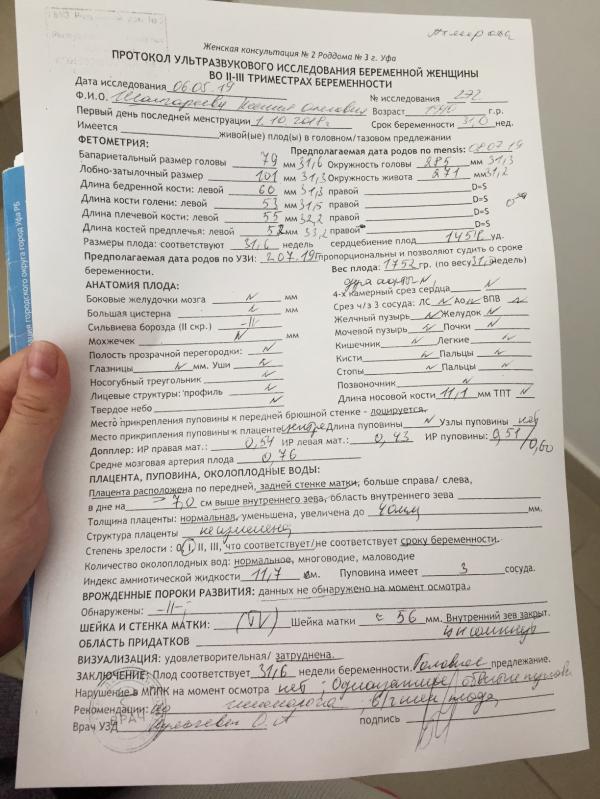 Женская консультация № 2 Роддома № 3 г. Уфа
ПРОТОКОЛ УЛЬТРАЗВУКОВОГО ИССЛЕДОВАНИЯ БЕРЕМЕННОЙ ЖЕНЩИНЫ
ВО II-III ТРИМЕСТРАХ БЕРЕМЕННОСТИ
Дата исследования 06.05.19 № исследования 272
Ф.И.О. Возраст 1990 г.р.
Первый день последней менструации 1.10.2018г Срок беременности 31,0 нед.
Имеется живой(ые) плод(ы) в головном/тазовом предлежании
ФЕТОМЕТРИЯ: Предполагаемая дата родов по mensis: 08.07.19
Бапариетальный размер головы 79 мм 31,6 Окружность головы 285 мм 31,3
Лобно-затылочный размер 101 мм 31,3 Окружность живота 271 мм 31,2
Длина бедренной кости: левой 60 мм 31,3 правой D=S
Длина кости голени: левой 53 мм 31,5 правой D=S
Длина плечевой кости: левой 55 мм 32,2 правой D=S
Длина костей предплечья: левой 52 мм 33,2 правой D=S
Размеры плода: соответствуют 31,6 недель сердцебиение плод 145 уд.
Предполагаемая дата родов по УЗИ: 2.07.19 пропорциональны и позволяют судить о сроке
беременности. Вес плода: 1752 гр. (по весу 31,0 недель)
дуга аорты N
АНАТОМИЯ ПЛОДА: 4-х камерный срез сердца N
Боковые желудочки мозга N мм Срез ч/з 3 сосуда: ЛС N Ао N ВПВ N
Большая цистерна N мм Желчный пузырь N Желудок N
Сильвиева борозда (II скр.) -//- Мочевой пузырь N Почки N
Мохжечек N мм Кишечник N Легкие N
Полость прозрачной перегородки: N Кисти N Пальцы N
Глазницы N мм. Уши N Стопы N Пальцы N
Носогубный треугольник N Позвоночник N
Лицевые структуры: профиль N Длина носовой кости 11,1 мм ТПТ N
Твердое небо N
Место прикрепления пуповины к передней брюшной стенке - лоцируется.
Место прикрепления пуповины к плаценте центр. Длина пуповины N Узлы пуповины нет
Допплер: ИР правая мат.: 0,54 ИР левая мат.: 0,43 ИР пуповины: 0,51/0,60
Средне мозговая артерия плода 0,76
ПЛАЦЕНТА, ПУПОВИНА, ОКОЛОПЛОДНЫЕ ВОДЫ:
Плацента расположена по передней, задней стенке матки, больше справа/ слева,
в дне на > 7,0 см выше внутреннего зева, область внутреннего зева
Толщина плаценты: нормальная, уменьшена, увеличена до 40мм мм.
Структура плаценты не изменена
Степень зрелости : 0, I, II, III, что соответствует/не соответствует сроку беременности.
Количество околоплодных вод: нормальное, многоводие, маловодие
Индекс амниотической жидкости 11,7 см. Пуповина имеет 3 сосуда.
ВРОЖДЕННЫЕ ПОРОКИ РАЗВИТИЯ: данных не обнаружено на момент осмотра.
Обнаружены: -//-
ШЕЙКА И СТЕНКА МАТКИ: (IV) Шейка матки ≈ 56 мм. Внутренний зев закрыт.
ОБЛАСТЬ ПРИДАТКОВ
ВИЗУАЛИЗАЦИЯ: удовлетворительная/ затруднена.
ЗАКЛЮЧЕНИЕ: Плод соответствует 31,6 недели беременности. Головное предлежание.
Нарушение в МППК на момент осмотра нет; Однократное обвитие пуповины
Рекомендации: гинеколога, плода
Врач УЗД О.А подпись
ВРАЧ